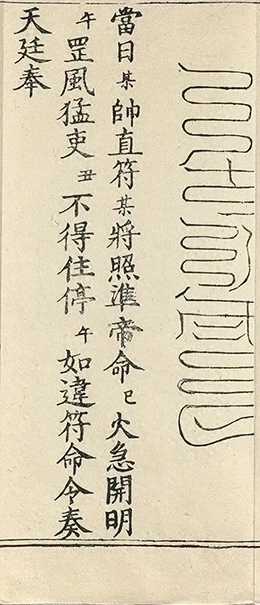 當日某帥直符某將照準帝命巳火急開明
午罡風猛吏丑不得住停午如違符命令奏
天廷奉